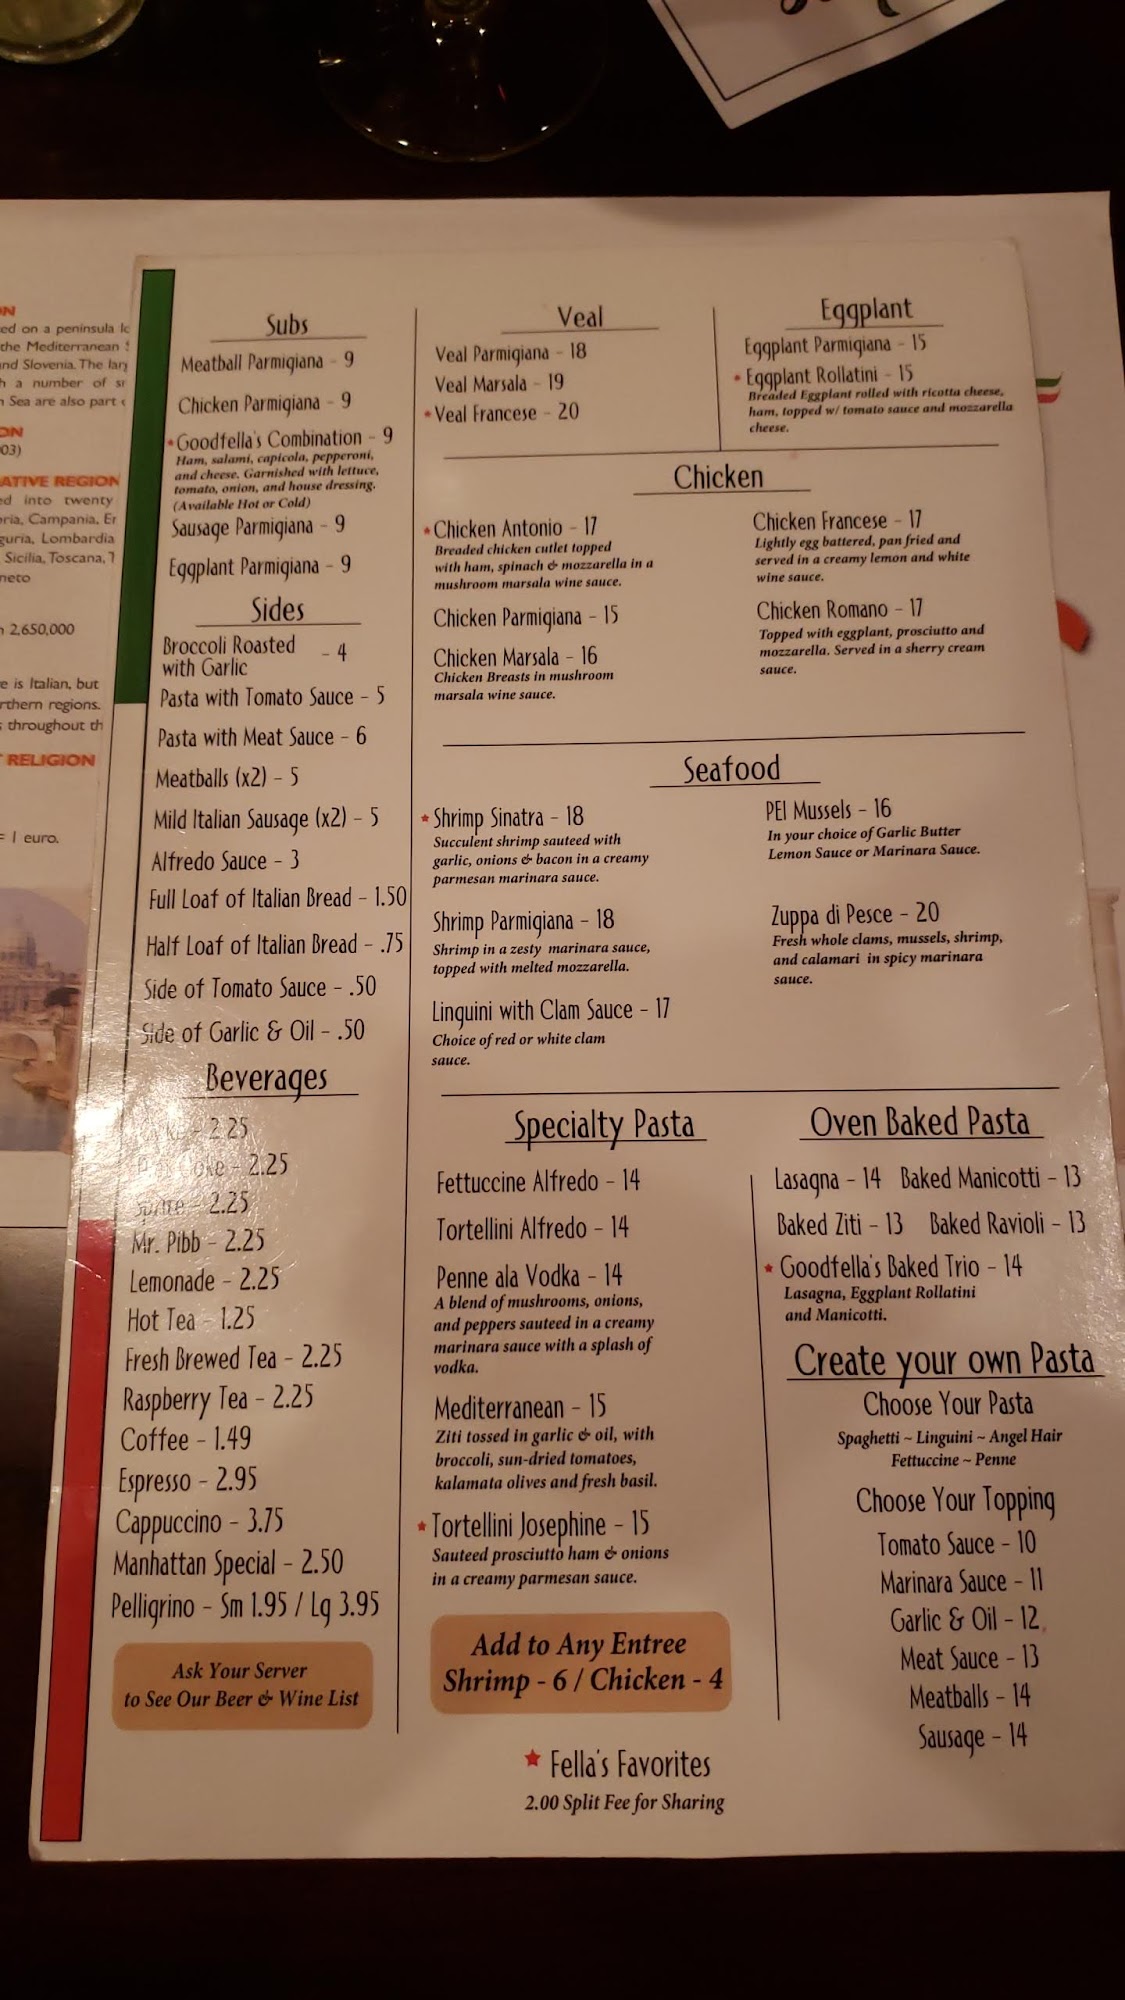 ON
ed on a peninsula lo
the Mediterranean S
nd Slovenia. The larg
h a number of sr
n Sea are also part o
ON
03)
ATIVE REGION
ed into twenty
eria, Campania, Er
guria, Lombardia
Sicilia, Toscana, T
neto
2,650,000
e is Italian, but
rthern regions.
s throughout th
T RELIGION
= 1 euro.
Subs
Meatball Parmigiana - 9
Chicken Parmigiana - 9
Goodfella's Combination - 9
Ham, salami, capicola, pepperoni,
and cheese. Garnished with lettuce,
tomato, onion, and house dressing.
(Available Hot or Cold)
Sausage Parmigiana - 9
Eggplant Parmigiana - 9
Sides
Broccoli Roasted
with Garlic - 4
Pasta with Tomato Sauce - 5
Pasta with Meat Sauce - 6
Meatballs (x2) - 5
Mild Italian Sausage (x2) - 5
Alfredo Sauce - 3
Full Loaf of Italian Bread - 1.50
Half Loaf of Italian Bread - .75
Side of Tomato Sauce - .50
Side of Garlic & Oil - .50
Beverages
- 2.25
Coke - 2.25
Sprite - 2.25
Mr. Pibb - 2.25
Lemonade - 2.25
Hot Tea - 1.25
Fresh Brewed Tea - 2.25
Raspberry Tea - 2.25
Coffee - 1.49
Espresso - 2.95
Cappuccino - 3.75
Manhattan Special - 2.50
Pelligrino - Sm 1.95 / Lg 3.95
Ask Your Server
to See Our Beer & Wine List
Veal
Veal Parmigiana - 18
Veal Marsala - 19
Veal Francese - 20
Eggplant
Eggplant Parmigiana - 15
Eggplant Rollatini - 15
Breaded Eggplant rolled with ricotta cheese,
ham, topped w/ tomato sauce and mozzarella
cheese.
Chicken
Chicken Antonio - 17
Breaded chicken cutlet topped
with ham, spinach & mozzarella in a
mushroom marsala wine sauce.
Chicken Parmigiana - 15
Chicken Marsala - 16
Chicken Breasts in mushroom
marsala wine sauce.
Chicken Francese - 17
Lightly egg battered, pan fried and
served in a creamy lemon and white
wine sauce.
Chicken Romano - 17
Topped with eggplant, prosciutto and
mozzarella. Served in a sherry cream
sauce.
Seafood
Shrimp Sinatra - 18
Succulent shrimp sauteed with
garlic, onions & bacon in a creamy
parmesan marinara sauce.
Shrimp Parmigiana - 18
Shrimp in a zesty marinara sauce,
topped with melted mozzarella.
Linguini with Clam Sauce - 17
Choice of red or white clam
sauce.
PEI Mussels - 16
In your choice of Garlic Butter
Lemon Sauce or Marinara Sauce.
Zuppa di Pesce - 20
Fresh whole clams, mussels, shrimp,
and calamari in spicy marinara
sauce.
Specialty Pasta
Fettuccine Alfredo - 14
Tortellini Alfredo - 14
Penne ala Vodka - 14
A blend of mushrooms, onions,
and peppers sauteed in a creamy
marinara sauce with a splash of
vodka.
Mediterranean - 15
Ziti tossed in garlic & oil, with
broccoli, sun-dried tomatoes,
kalamata olives and fresh basil.
Tortellini Josephine - 15
Sauteed prosciutto ham & onions
in a creamy parmesan sauce.
Add to Any Entree
Shrimp - 6 / Chicken - 4
Oven Baked Pasta
Lasagna - 14 Baked Manicotti - 13
Baked Ziti - 13 Baked Ravioli - 13
Goodfella's Baked Trio - 14
Lasagna, Eggplant Rollatini
and Manicotti.
Create your own Pasta
Choose Your Pasta
Spaghetti ~ Linguini ~ Angel Hair
Fettuccine ~ Penne
Choose Your Topping
Tomato Sauce - 10
Marinara Sauce - 11
Garlic & Oil - 12
Meat Sauce - 13
Meatballs - 14
Sausage - 14
Fella's Favorites
2.00 Split Fee for Sharing